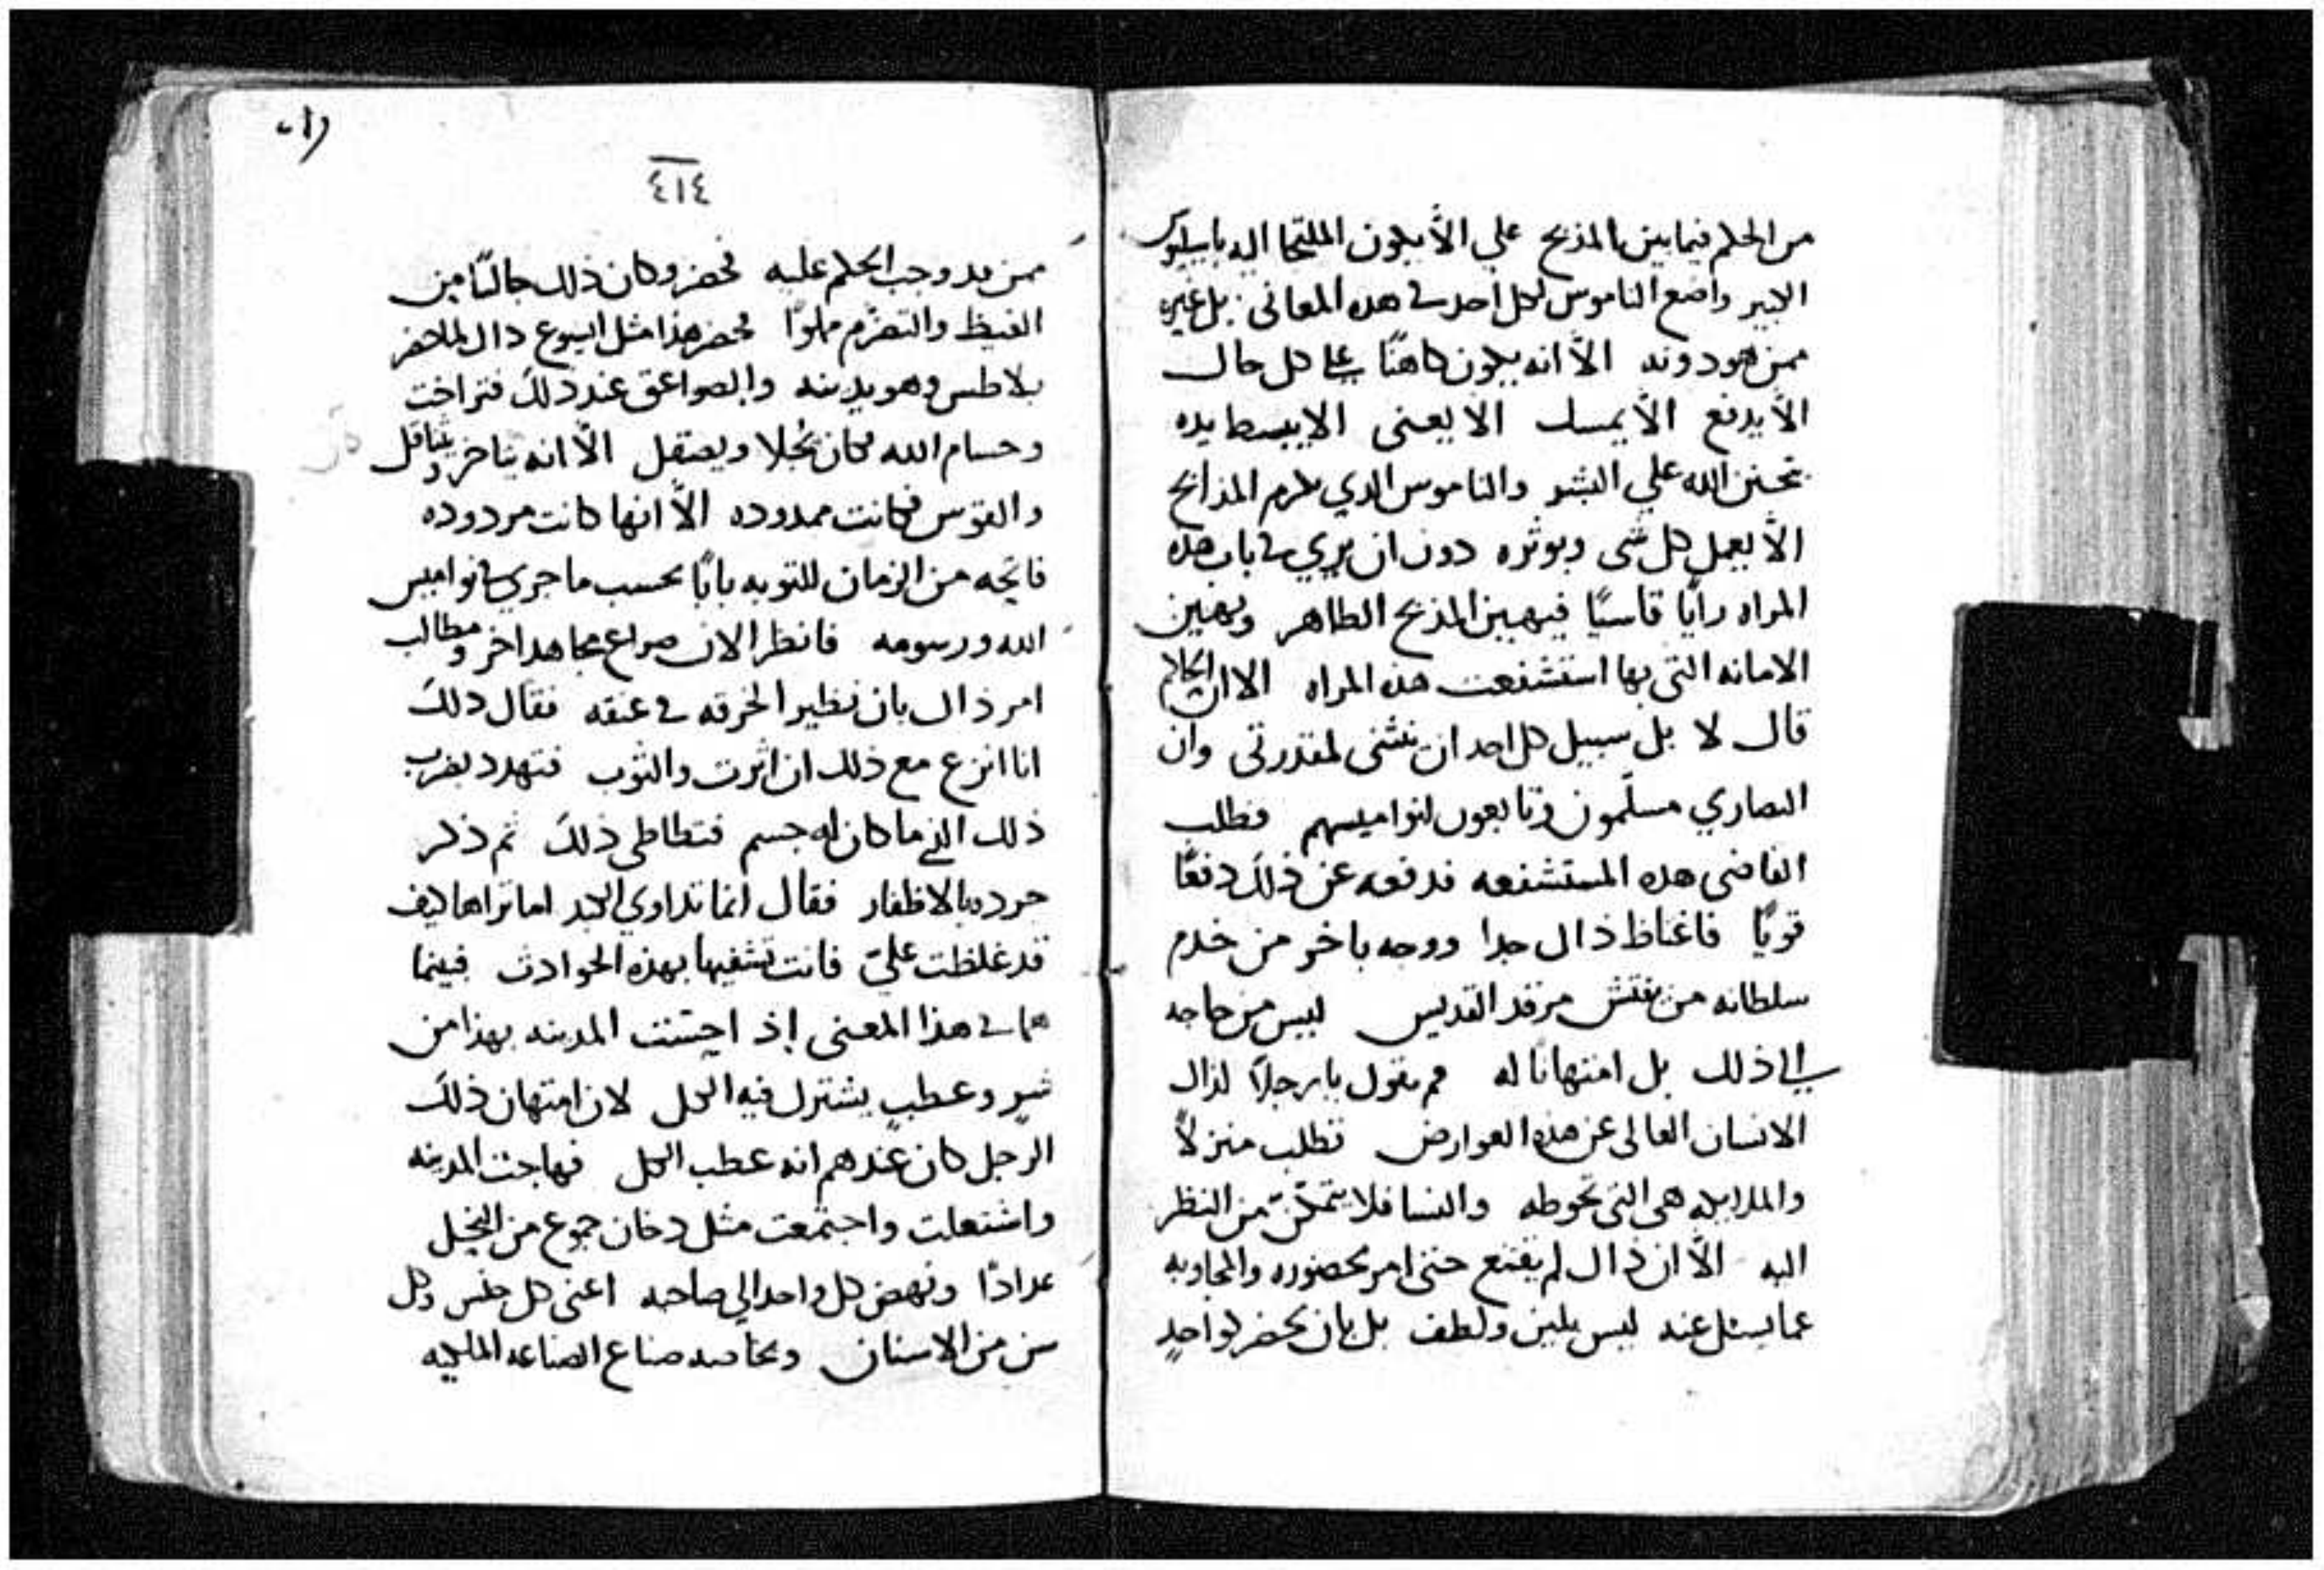 من الحكم فيما بين المذبح علي الأ يكون الملتجا اليه باسيليوس
الكبير واضع الناموس لكل احد في هذه المعاني بل غيره
ممن هو دونه الاّ انه يكون كاهنًا على كل حال
الاّ يدفع الاّ يمسك الا يعنى الا يبسط يده
بتحنن الله علي البشر والناموس الدي يكرم المذابح
الاّ يعمل كل شي ويوثره دون ان يري في باب هذه
المراه رأيًا قاسيًا فيهين المذبح الطاهر ويهين
الامانه التي بها استشفعت هذه المراه الا ان الحاكم
قال لا بل سبيل كل احد ان ينثني لمقدرتي وان
النصاري مسلّمون وتابعون لنواميسهم فطلب
القاضي هذه المستشفعه فدفعه عن ذلك دفعًا
قويًا فاغتاظ ذاك جدا ووجه باخر من خدم
سلطانه من يفتش مرقد القديس ليس من حاجه
الي ذلك بل امتهانا له يقول يا رجلاً لذاك
الانسان العالي عن هذه العوارض تطلب منزلاً
والملايكه هي التي تحوطه والنسا فلا يتمكّن من النظر
اليه الاّ ان ذاك لم يقنع حتى امر بحضوره والمجاوبه
عما يسئل عنه ليس بلين ولطف بل بان يحضر كواحدٍ
٤١٤
ممن قد وجب الحكم عليه فحضر وكان ذلك جالسًا من
الغيظ والتعزم مملوًا فحضر هذا مثل ايسوع ذاك لما حضر
بلاطس وهو يدينه والصواعق عند ذلك فتراخت
وحسام الله فكان يُجلا ويصقل الاّ انه يتاخر ويثاقل
والقوس فكانت ممدوده الاّ انها كانت مردوده
فاتحه من الزمان للتوبه بابًا بحسب ما جري في نواميس
الله ورسومه فانظر الان صراع مجاهد اخر ومطالب
امر ذاك بان تطير الخرقه في عنقه فقال ذلك
انا انزع مع ذلك ان اثرت والثوب فتهدد بضرب
ذلك الذي ما كان له جسم فتطاطى ذلك ثم ذكر
جرده بالاظفار فقال انما تداوي الكبد اما تراها كيف
قد غلظت عليّ فانت تشفيها بهذه الحوادث فبينما
هما في هذا المعنى إذ احست المدينه بهذا من
شرٍ وعطبٍ يشترك فيه الكل لان امتهان ذلك
الرجل كان عندهم انه عطب الكل فهاجت المدينه
واشتعلت واجتمعت مثل دخان جموع من النحل
عدادًا ونهض كل واحد الي صاحبه اعني كل جنس وكل
سن من الاسنان وبخاصه صناع الصناعه الملكيه